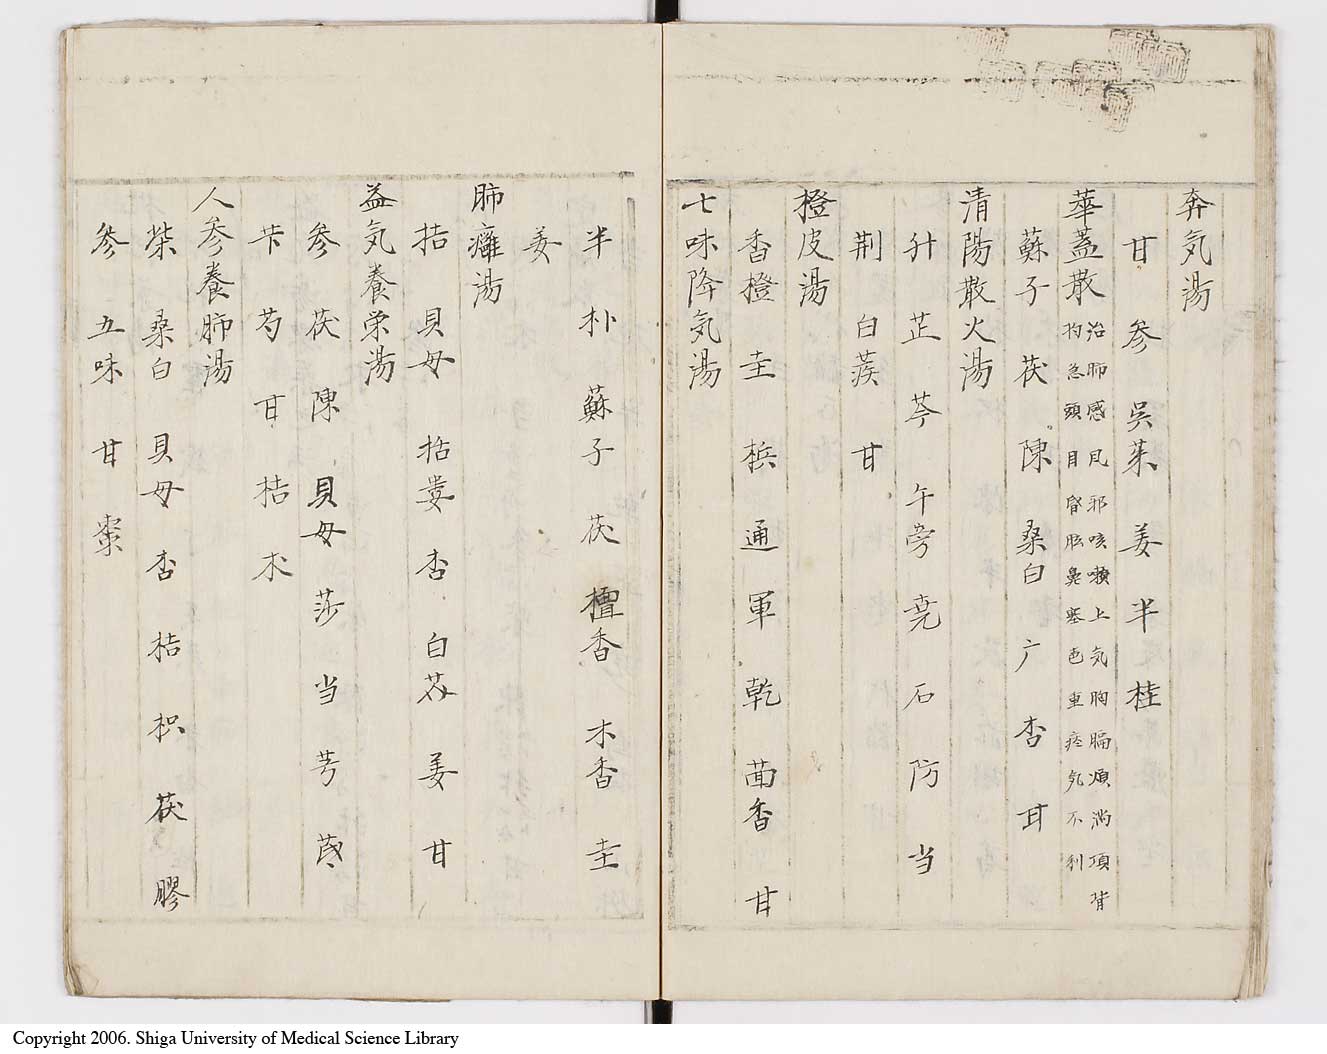 奔気湯
甘 參 呉茱 姜 半 桂
華蓋散 治肺感風邪咳嗽上気胸膈煩満項背
拘急頭目昏眩鼻塞色重痰気不利
蘇子 茯 陳 桑白 广 杏 甘
清陽散火湯
升 芷 芩 午旁 尭 石 防 当
荆 白蒺 甘
橙皮湯
香橙 圭 梹 通 軍 乾 茴香 甘
七味降気湯
半 朴 蘇子 茯 檀香 木香 圭
姜
肺癰湯
桔 貝母 括蔞 杏 白芥 姜 甘
益気養栄湯
參 茯 陳 貝母 莎 当 芎 茋
芐 芍 甘 桔 朮
人參養肺湯
柴 桑白 貝母 杏 桔 枳 茯 膠
參 五味 甘 棗
Copyright 2006. Shiga University of Medical Science Library